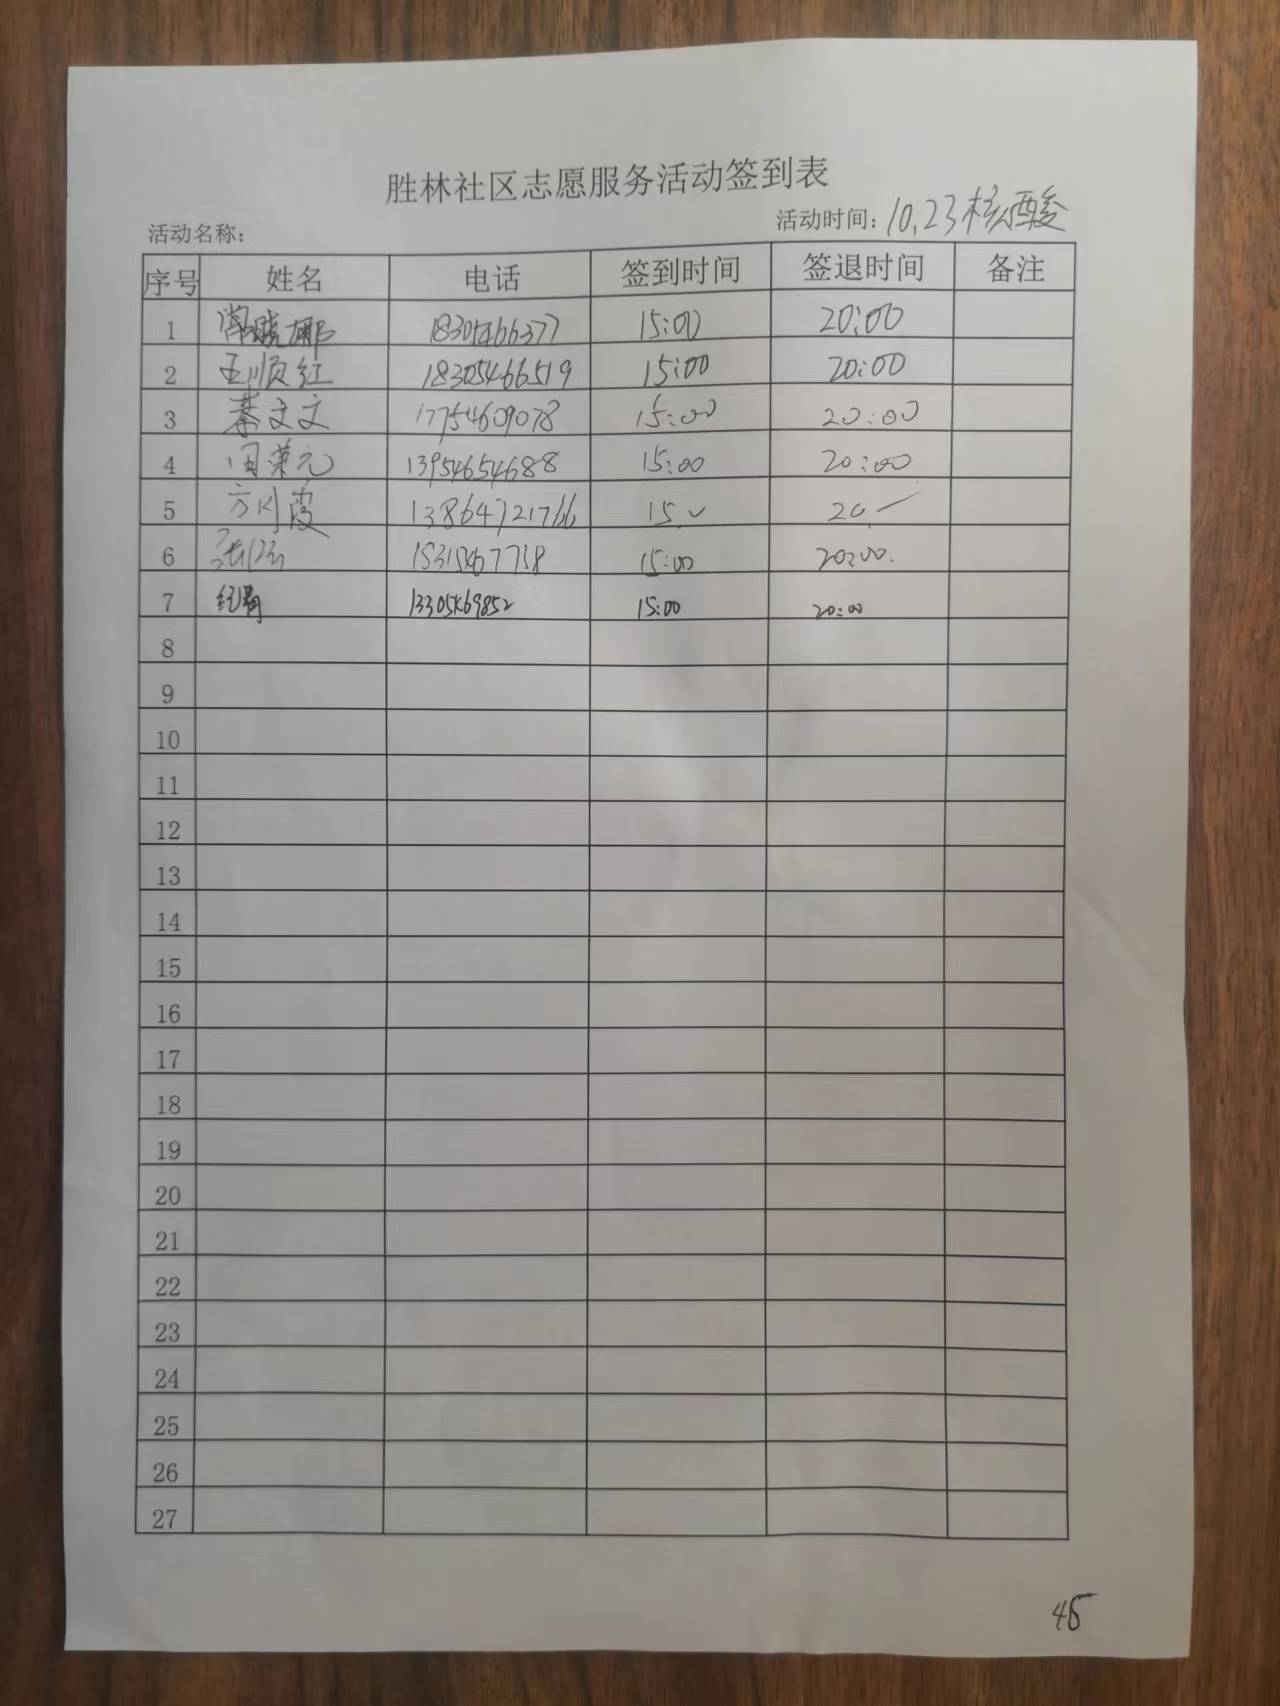 胜林社区志愿服务活动签到表
活动名称： 活动时间：10.23核酸
序号 姓名 电话 签到时间 签退时间 备注
1 18305466377 15:00 20:00
2 王顺红 18305466519 15:00 20:00
3 綦文文 17754609078 15:00 20:00
4 13954654688 15:00 20:00
5 方川霞 13864721766 15 20
6 15315467758 15:00 20:00.
7 13305469852 15:00 20:00
8
9
10
11
12
13
14
15
16
17
18
19
20
21
22
23
24
25
26
27
45